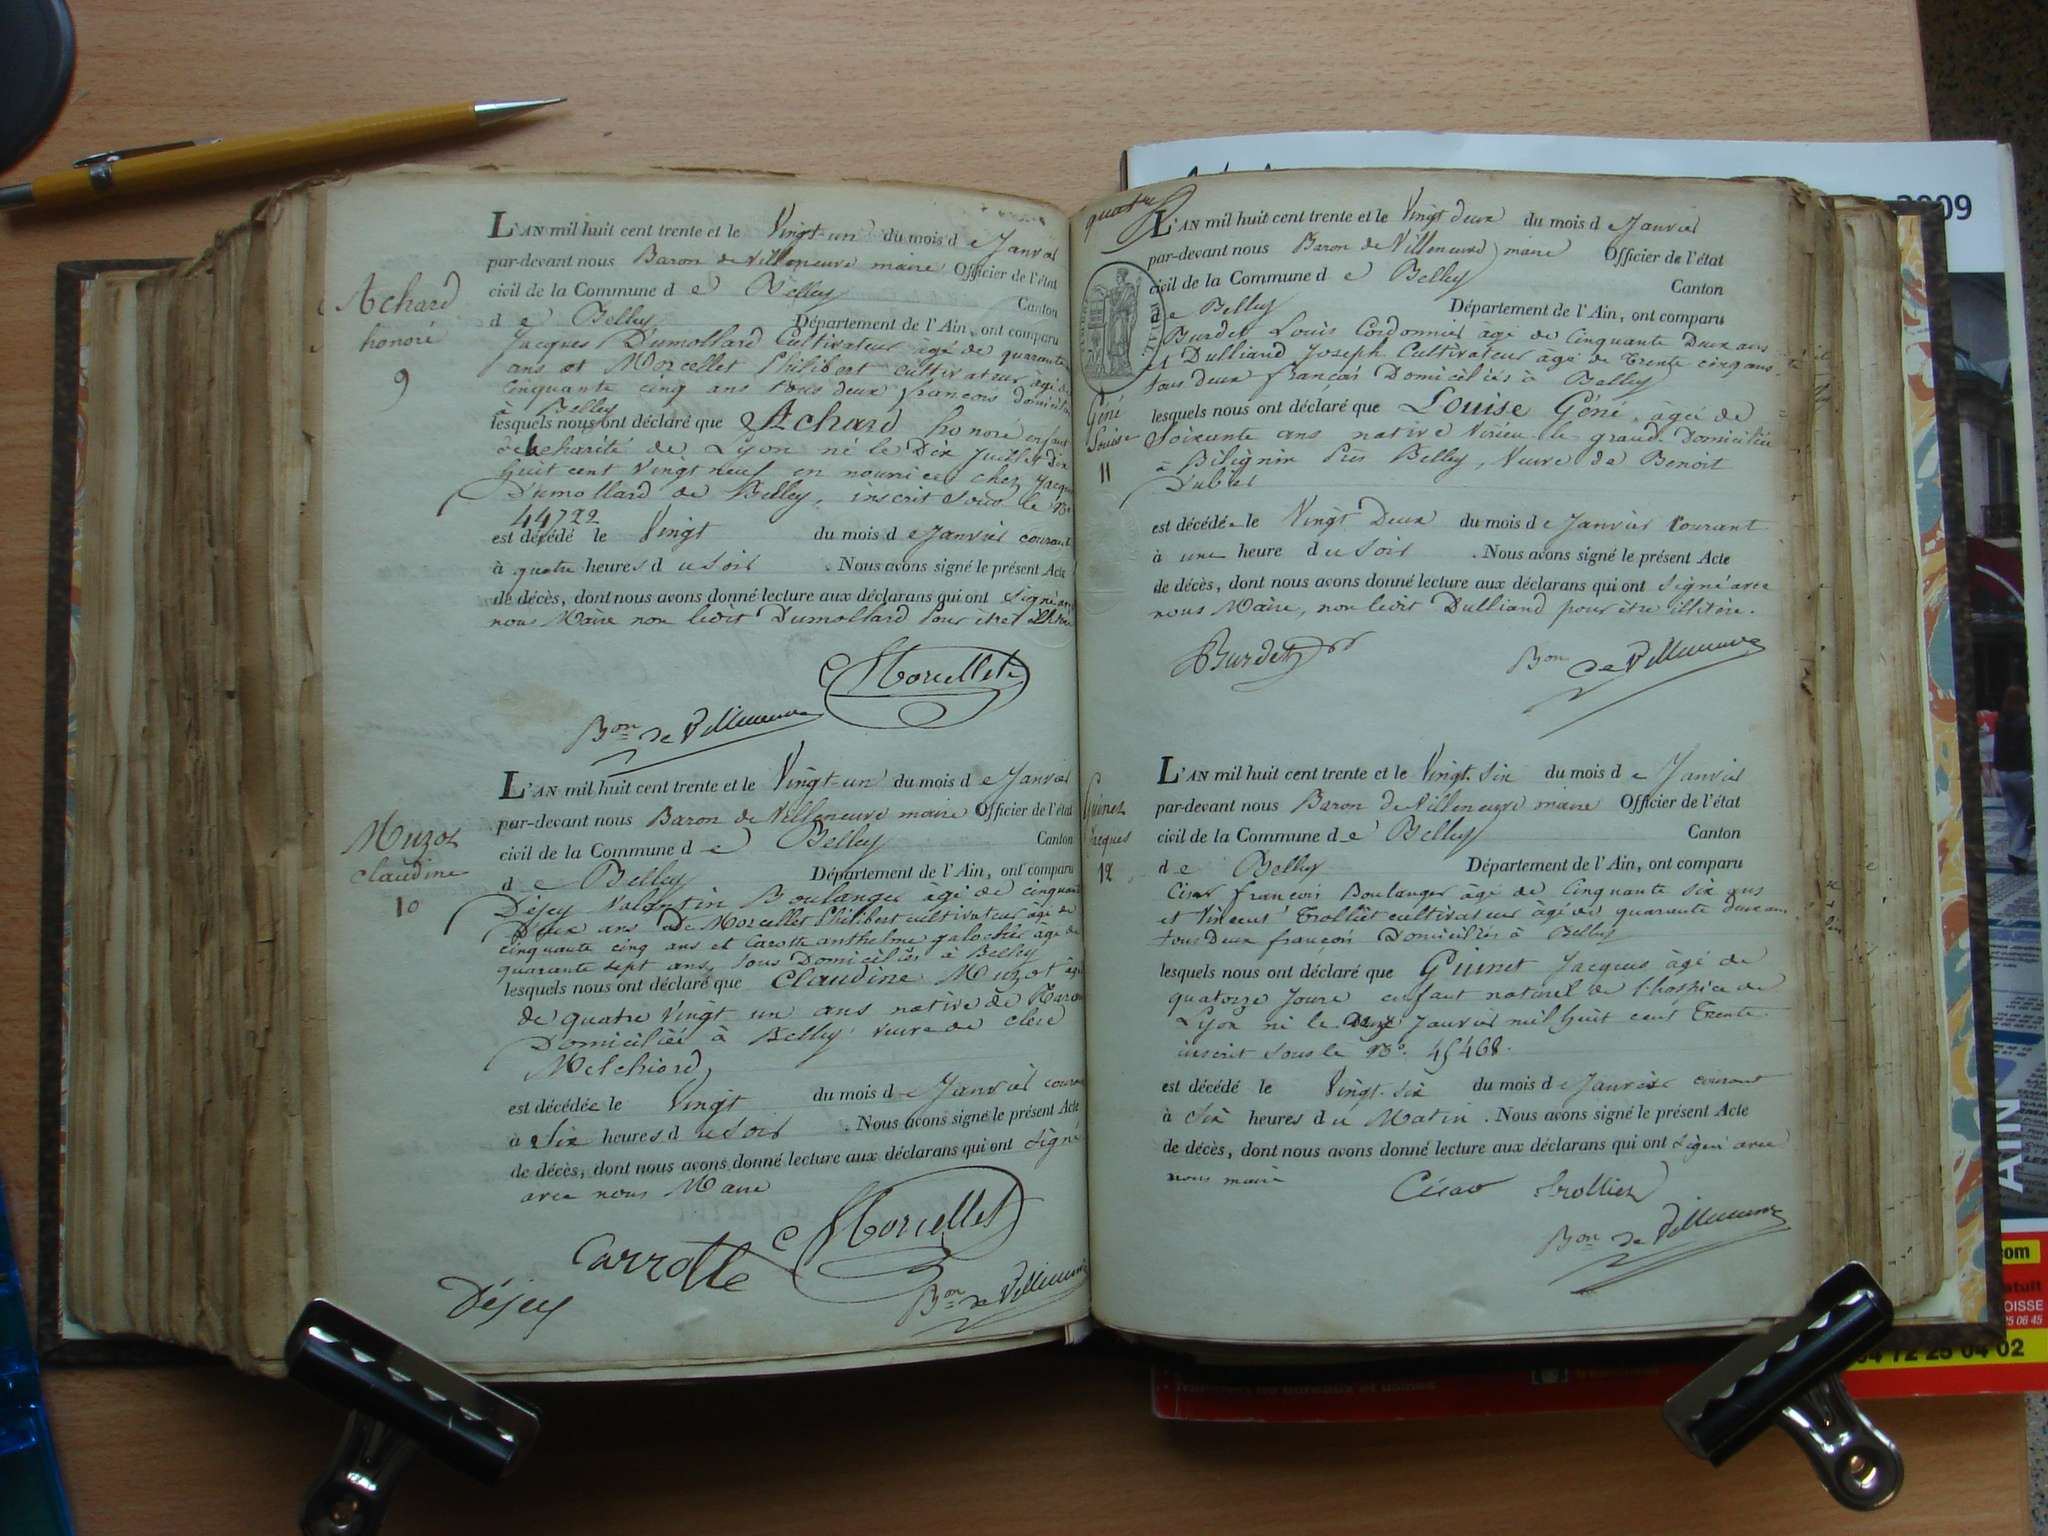 Achard
honoré
9
L'AN mil huit cent trente et le Vingt-un du mois d e Janvier
par-devant nous Baron de Villeneuve maire Officier de l'état
civil de la Commune d e Belley Canton
d e Belley Département de l'Ain, ont comparu
Jacques Dumollard Cultivateur âgé de quarante
ans et Morcellet Philibert cultivateur âgé de
Cinquante cinq ans tous deux françois domiciliés
à Belley
lesquels nous ont déclaré que Achard honoré enfant
de charité de Lyon né le Dix Juillet dix
huit cent vingt neuf en nourrice chez Jacques
Dumollard de Belley, inscrit sous le No
44722
est décédé le Vingt du mois d e Janvier courant
à quatre heures d u soir . Nous avons signé le présent Acte
de décès, dont nous avons donné lecture aux déclarans qui ont signé avec
nous Maire non ledit Dumollard pour être
Morcellet
Bon de Villeneuve
Muzot
claudine
10
L'AN mil huit cent trente et le Vingt-un du mois d e Janvier
par-devant nous Baron de Villeneuve maire Officier de l'état
civil de la Commune d e Belley Canton
d e Belley Département de l'Ain, ont comparu
Déjey Valentin Boulanger âgé de cinquante
Deux ans De Morcellet Philibert cultivateur âgé de
cinquante cinq ans et Carotte anthelme galochier âgé de
quarante sept ans, tous Domiciliés à Belley
lesquels nous ont déclaré que Claudine Muzot âgée
de quatre Vingt un ans native de
Domiciliée à Belley veuve de clerc
Melchiord,
est décédée le Vingt du mois d e Janvier courant
à Six heures d u soir . Nous avons signé le présent Acte
de décès, dont nous avons donné lecture aux déclarans qui ont signé
avec nous Maire
Carrotte Morcellet
Déjey Bon de Villeneuve
quatre
L'AN mil huit cent trente et le Vingt deux du mois d e Janvier
par-devant nous Baron de Villeneuve maire Officier de l'état
civil de la Commune d e Belley Canton
d e Belley Département de l'Ain, ont comparu
Burdet Louis Cordonnier âgé de Cinquante Deux ans
et Dulliand Joseph Cultivateur âgé de Trente cinq ans
tous deux françois Domiciliés à Belley
Géné
Louise
11
lesquels nous ont déclaré que Louise Géné, âgée de
Soixante ans native Virieu le grand Domiciliée
à Bilignin Près Belley, Veuve de Benoit
est décédée le Vingt Deux du mois d e Janvier courant
à une heure d u soir . Nous avons signé le présent Acte
de décès, dont nous avons donné lecture aux déclarans qui ont signé avec
nous Maire, non ledit Dulliand pour être illitéré.
Burdet
Bon de Villeneuve
Guinet
Jacques
12
L'AN mil huit cent trente et le Vingt-six du mois d e Janvier
par-devant nous Baron de Villeneuve maire Officier de l'état
civil de la Commune d e Belley Canton
d e Belley Département de l'Ain, ont comparu
César françois Boulanger âgé de Cinquante six ans
et Vincent Trolliet cultivateur âgé de quarante deux ans
tous Deux françois Domiciliés à Belley
lesquels nous ont déclaré que Guinet Jacques âgé de
quatorze Jours enfant naturel de l'hospice de
Lyon né le Janvier mil huit cent Trente
inscrit sous le No. 45468.
est décédé le Vingt-six du mois d e Janvier courant
à Six heures d u Matin . Nous avons signé le présent Acte
de décès, dont nous avons donné lecture aux déclarans qui ont signé avec
nous maire
César trolliet
Bon de Villeneuve
2009
AIN
.com
04 72 25 04 02